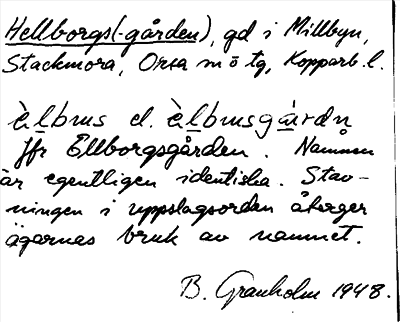 Hellborgs(-gården), gd i Millbyn,
Stackmora, Orsa sn o tg, Kopparb. l.
ὲlbᴜs el. ὲlbᴜsgáṛdṇ
Jfr Ellborgsgården. Namnen
är egentligen identiska. Stav-
ningen i uppslagsorden återger
ägarnas bruk av namnet.
B. Granholm 1948.